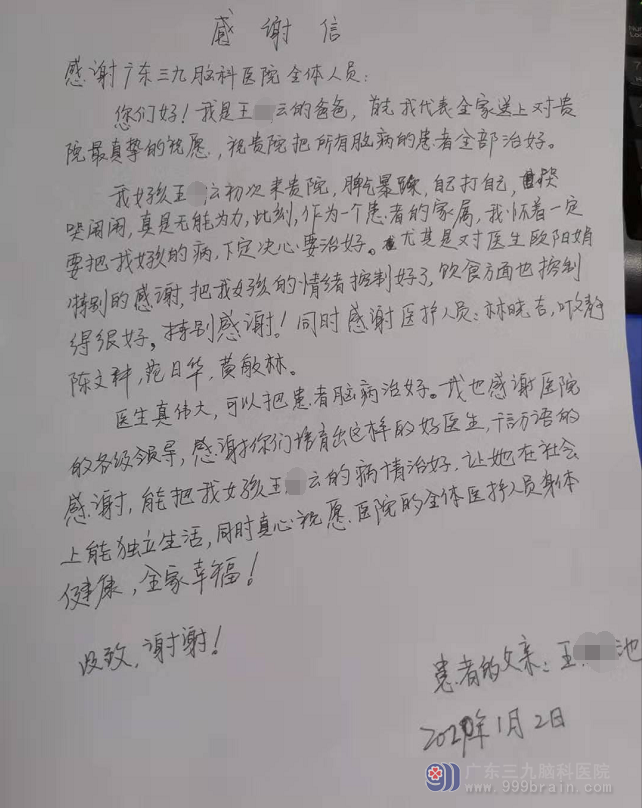 感谢信
感谢广东三九脑科医院全体人员：
您们好！我是王 云的爸爸，首先我代表全家送上对贵
院最真挚的祝愿，祝贵院把所有脑病的患者全部治好。
我女孩王 云初次来贵院，脾气暴躁，自己打自己，哭
哭闹闹，真是无能为力，此刻，作为一个患者的家属，我怀着一定
要把我女孩的病，下定决心要治好。尤其是对医生欧阳娟
特别的感谢，把我女孩的情绪控制好了，饮食方面也控制
得很好。特别感谢！同时感谢医护人员：林晓吉，叶文静
陈文种，范日华，黄敏林。
医生真伟大，可以把患者脑病治好。我也感谢医院
的各级领导，感谢你们培育出这样的好医生，千言万语的
感谢，能把我女孩王 云的病情治好，让她在社会
上能独立生活，同时真心祝愿医院的全体医护人员身体
健康，全家幸福！
致，谢谢！
患者的父亲：王 池
2021年1月2日
广东三九脑科医院
www.999brain.com